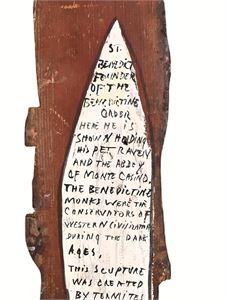 St.
BENEDICT
FOUNDER
OF THE
BENEDICTINE
ORDER
HERE HE IS
SHOWN HOLDING
HIS PET RAVEN
AND THE ABBEY
OF MONTE CASINO.
THE BENEDICTINE
MONKS WERE THE
CONSERVATORS OF
WESTERN CIVILIZATION
DURING THE DARK
AGES.
THIS SCUPTURE
WAS CREATED
BY TERMITES